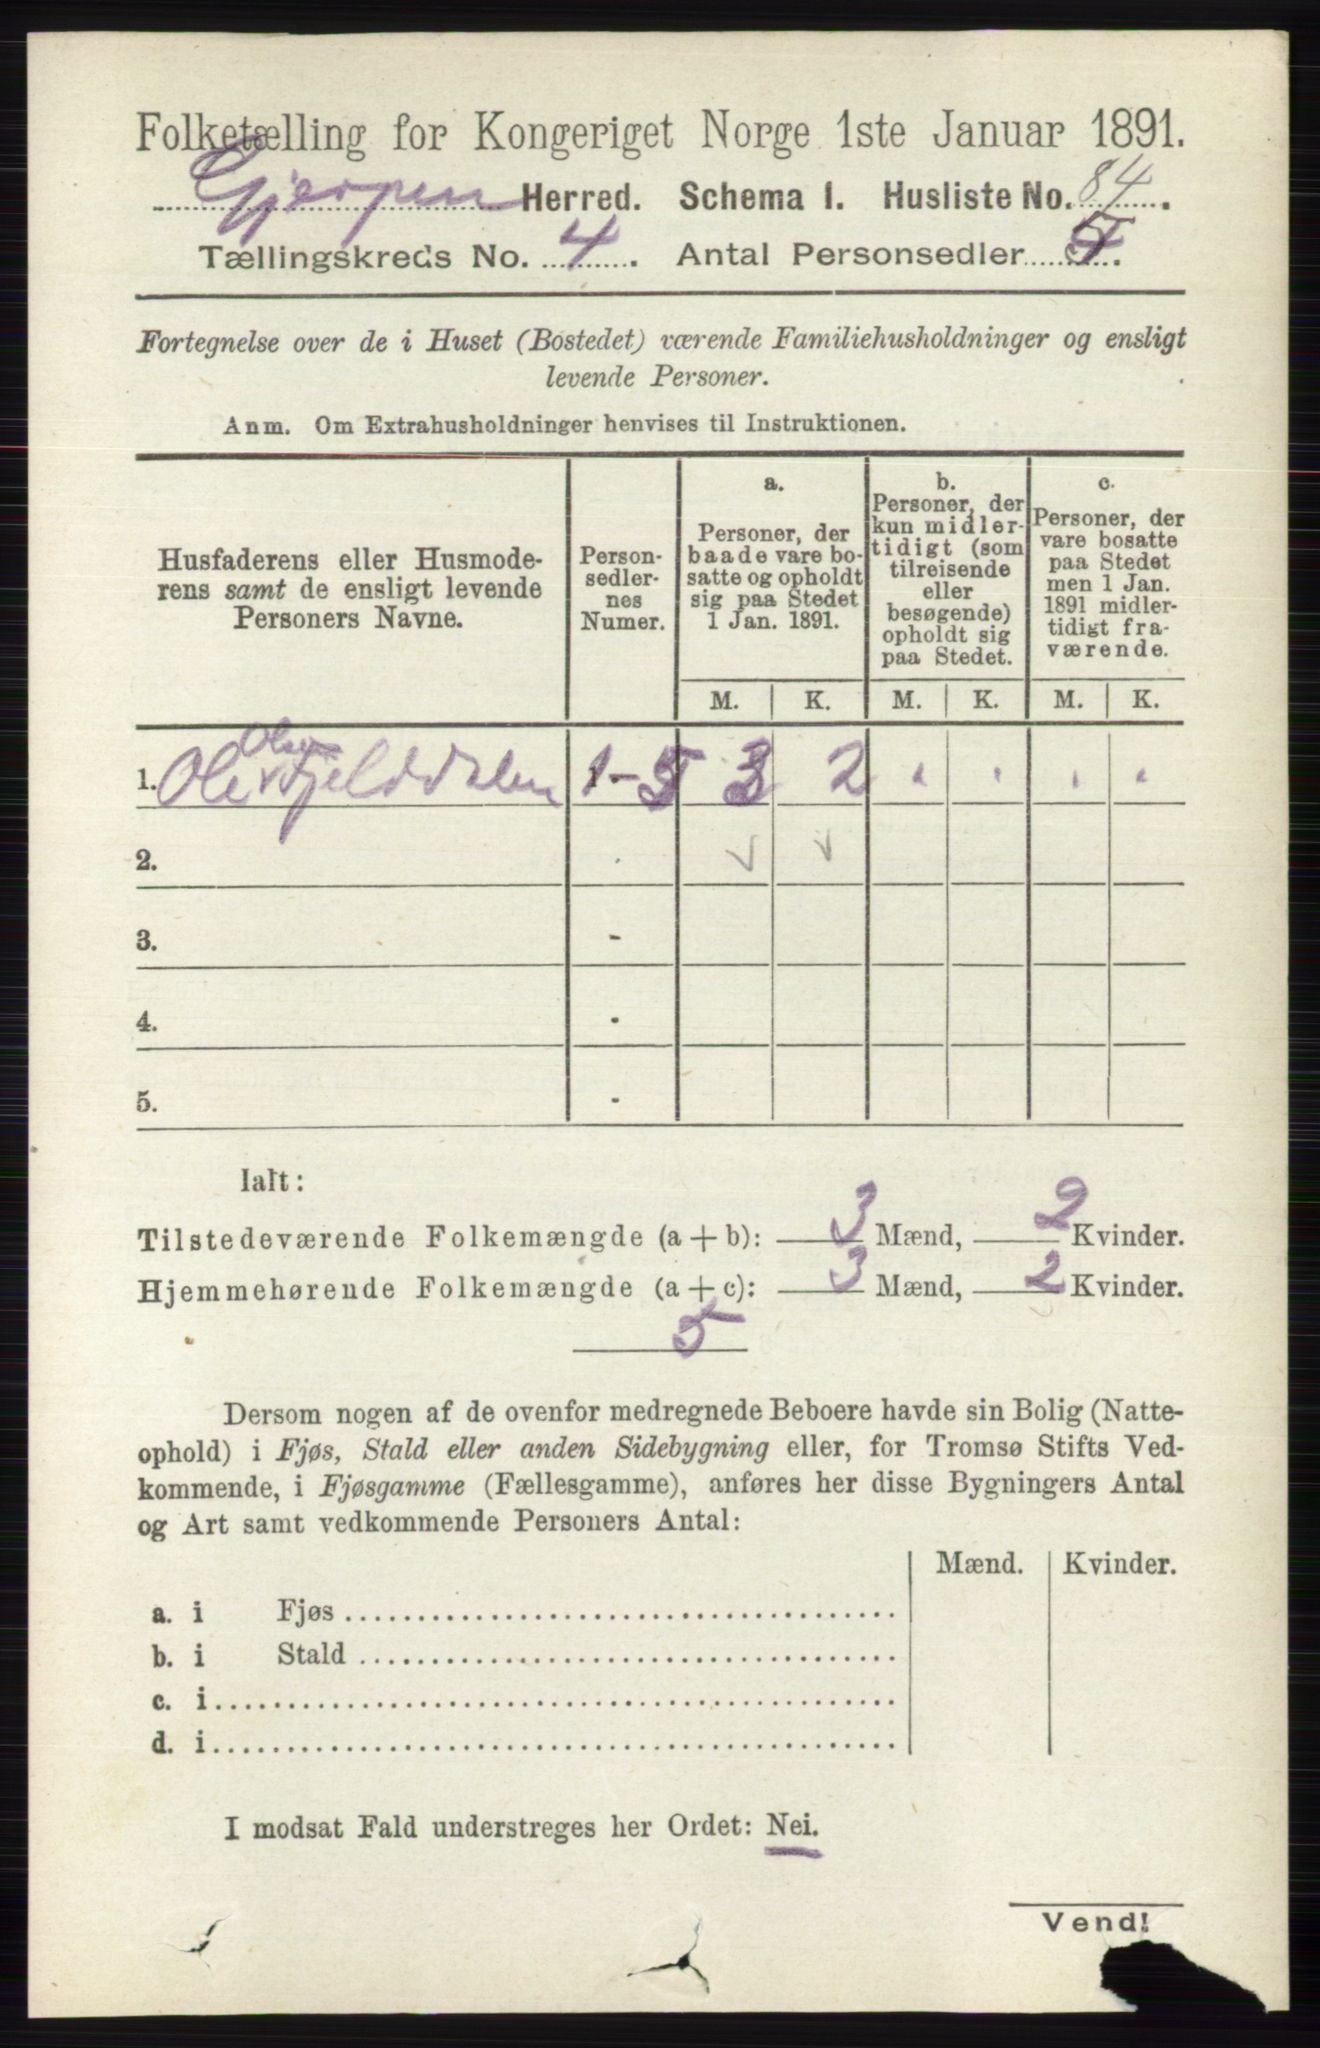 Folketælling for Kongeriget Norge 1ste Januar 1891.
Gjerpen Herred. Schema I. Husliste No. 84.
Tællingskreds No. 4. Antal Personsedler 5.
Fortegnelse over de i Huset (Bostedet) værende Familiehusholdninger og ensligt
levende Personer.
Anm. Om Extrahusholdninger henvises til Instruktionen.
Husfaderens eller Husmode-
rens samt de ensligt levende
Personers Navne.
Person-
sedler-
nes
Numer.
a.
Personer, der
baade vare bo-
satte og opholdt
sig paa Stedet
1 Jan. 1891.
b.
Personer, der
kun midler-
tidigt (som
tilreisende
eller
besøgende)
opholdt sig
paa Stedet.
c.
Personer, der
vare bosatte
paa Stedet
men 1 Jan.
1891 midler-
tidigt fra-
værende.
M. K. M. K. M. K.
1. Ole Olsen Fjelddalen 1-5 3 2 . . . .
2.
3. -
4. -
5. -
Ialt:
Tilstedeværende Folkemængde (a + b): 3 Mænd, 2 Kvinder.
Hjemmehørende Folkemængde (a + c): 3 Mænd, 2 Kvinder.
5
Dersom nogen af de ovenfor medregnede Beboere havde sin Bolig (Natte-
ophold) i Fjøs, Stald eller anden Sidebygning eller, for Tromsø Stifts Ved-
kommende, i Fjøsgamme (Fællesgamme), anføres her disse Bygningers Antal
og Art samt vedkommende Personers Antal:
Mænd. Kvinder.
a. i Fjøs
b. i Stald
c. i
d. i
I modsat Fald understreges her Ordet: Nei.
Vend!